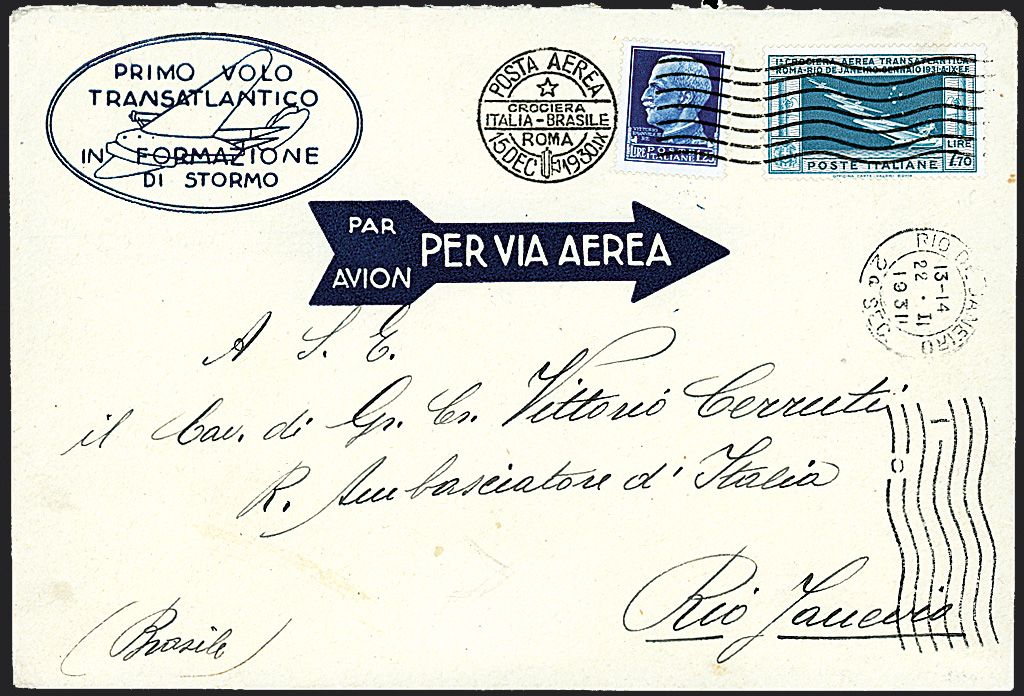 PRIMO VOLO
TRANSATLANTICO
IN FORMAZIONE
DI STORMO
POSTA AEREA
CROCIERA
ITALIA-BRASILE
ROMA
15 DEC 1930 IX
LIRE POSTE ITALIANE 1,25
Iª CROCIERA AEREA TRANSATLANTICA
ROMA-RIO DE JANEIRO-GENNAIO 1931-A.IX-E.F.
LIRE
7.70
POSTE ITALIANE
PAR
AVION
PER VIA AEREA
RIO DE JANEIRO
13-14
22 . II
1931
2ª SEC
A S. E.
il Cav. di Gr. Cr. Vittorio Cerruti
R. Ambasciatore d' Italia
Rio Janeiro
(Brasile)